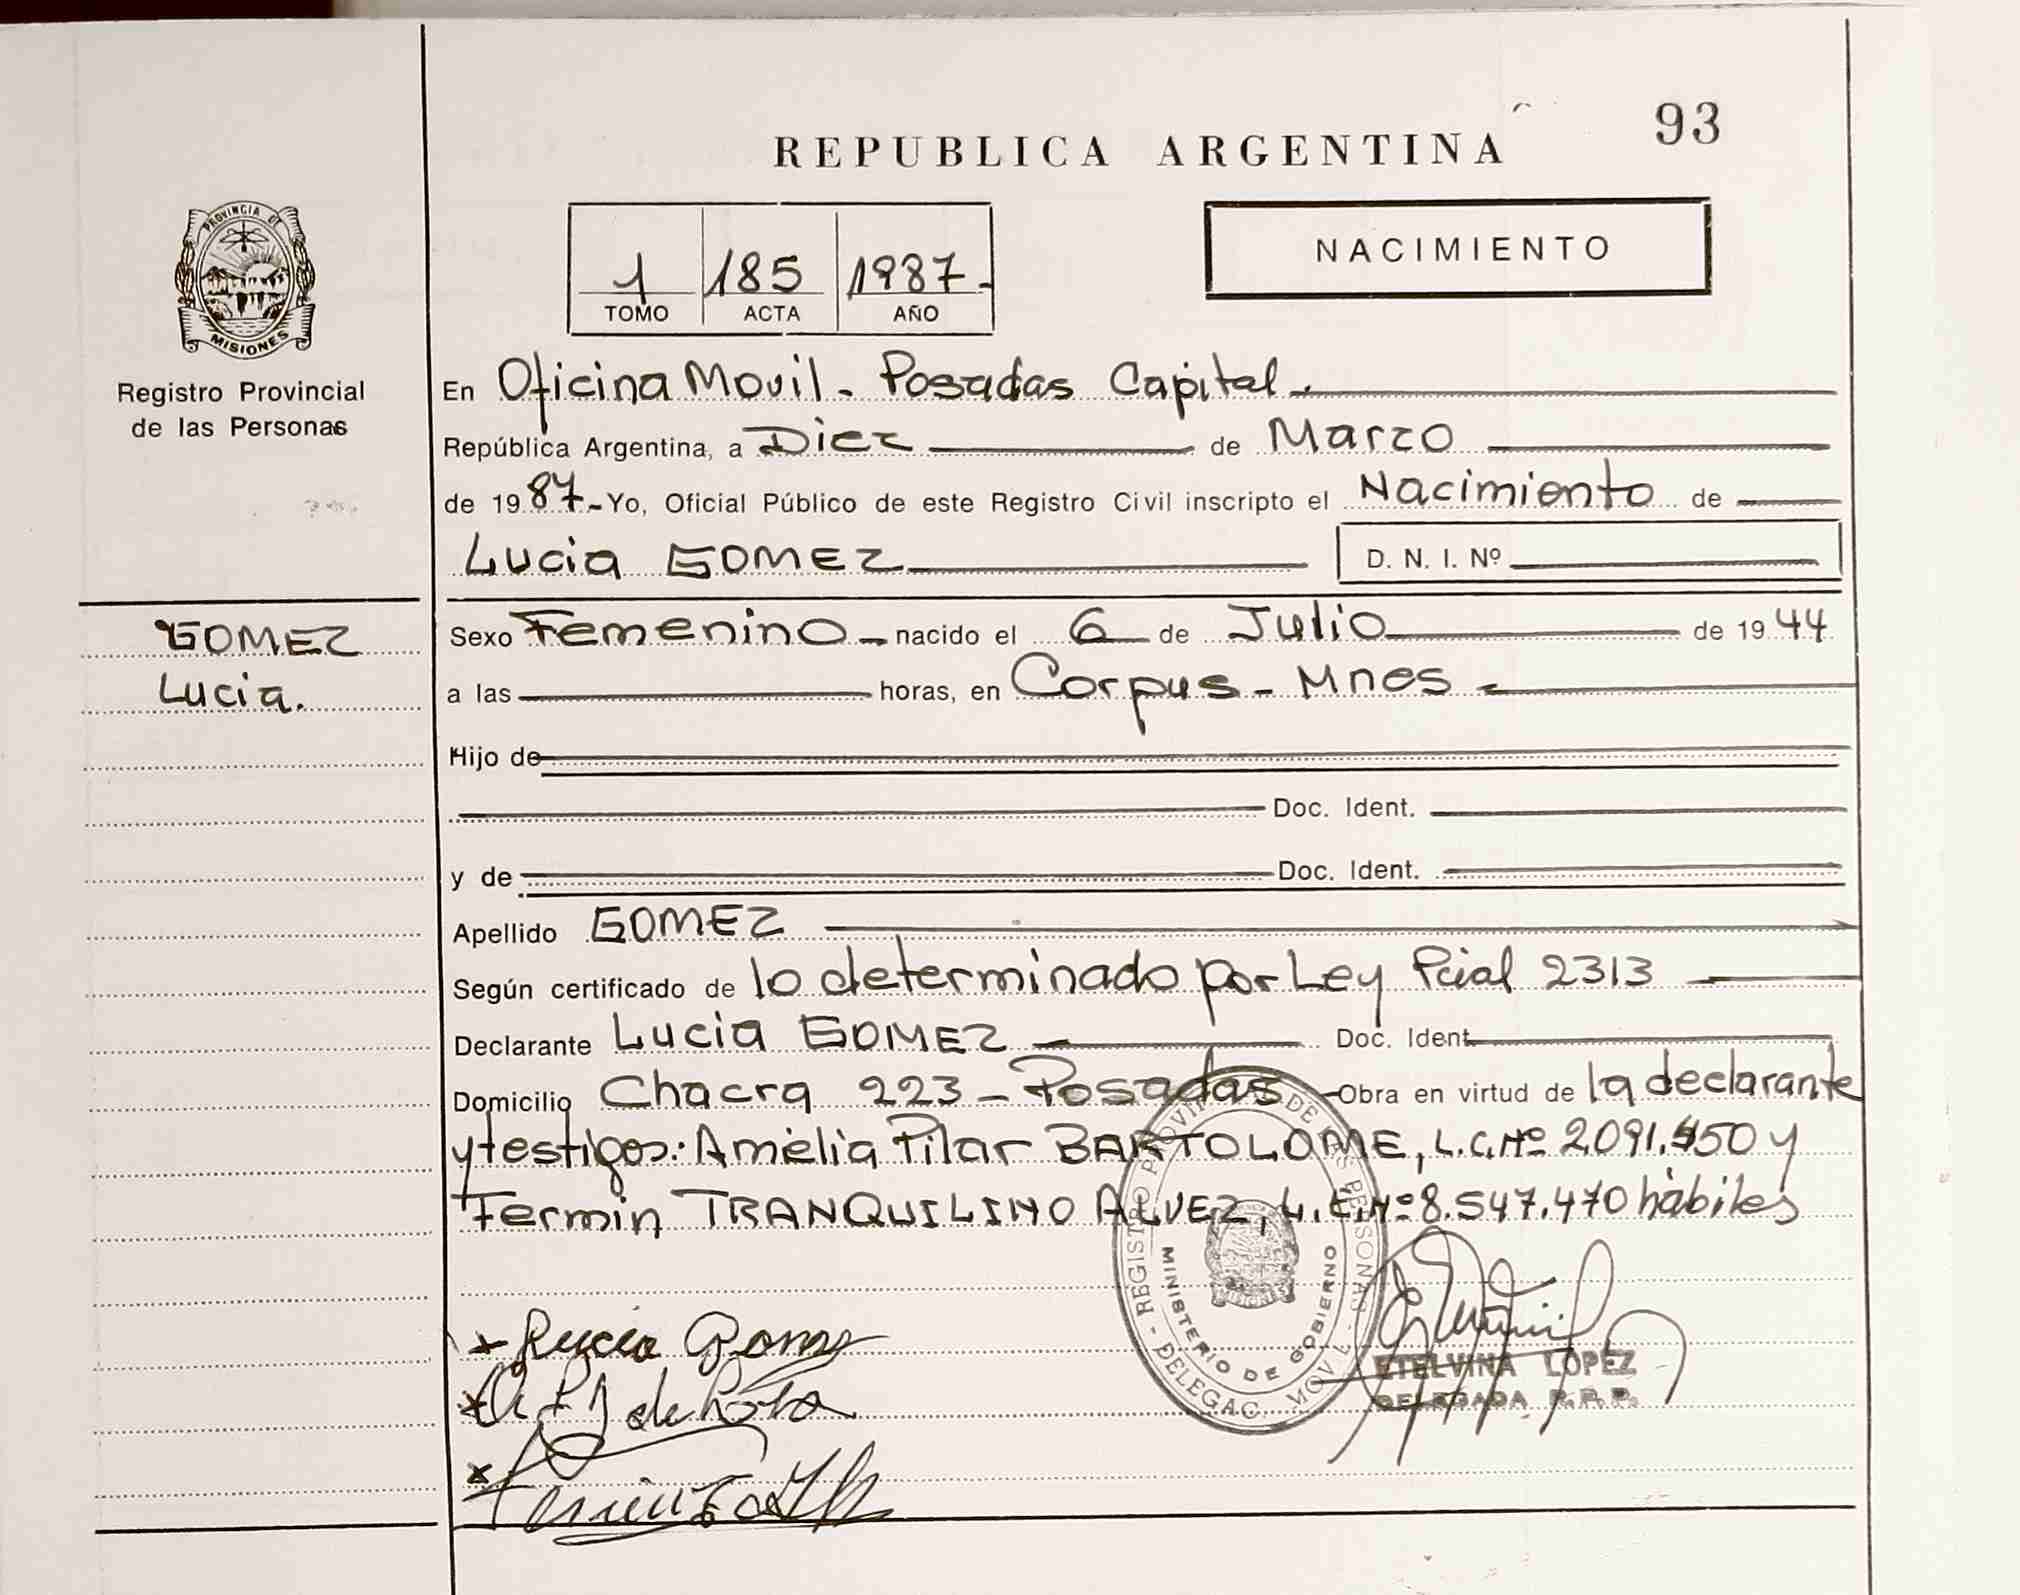 93
REPUBLICA ARGENTINA
PROVINCIA DE
MISIONES
Registro Provincial
de las Personas
1 185 1987
TOMO ACTA AÑO
NACIMIENTO
En Oficina Movil - Posadas Capital
República Argentina, a Diez de Marzo
de 1987 - Yo, Oficial Público de este Registro Civil inscripto el Nacimiento de
Lucia GOMEZ D. N. I. Nº
GOMEZ
Lucia.
Sexo Femenino - nacido el 6 de Julio de 1944
a las horas, en Corpus - Mnes -
Hijo de
Doc. Ident.
y de Doc. Ident.
Apellido GOMEZ
Según certificado de lo determinado por Ley Pcial 2313
Declarante Lucia GOMEZ Doc. Ident
Domicilio Chacra 223 - Posadas - Obra en virtud de la declarante
y testigos: Amelia Pilar BARTOLOME, L.C. Nº 2.091.450 y
Fermin TRANQUILINO ALVEZ, L.E. Nº 8.547.470 hàbiles
REGISTRO PROVINCIAL DE LAS PERSONAS - DELEGAC. MOVIL -
MINISTERIO DE GOBIERNO
MISIONES
x Lucia Gomez
x
x
ETELVINA LOPEZ
DELEGADA R.P.P.